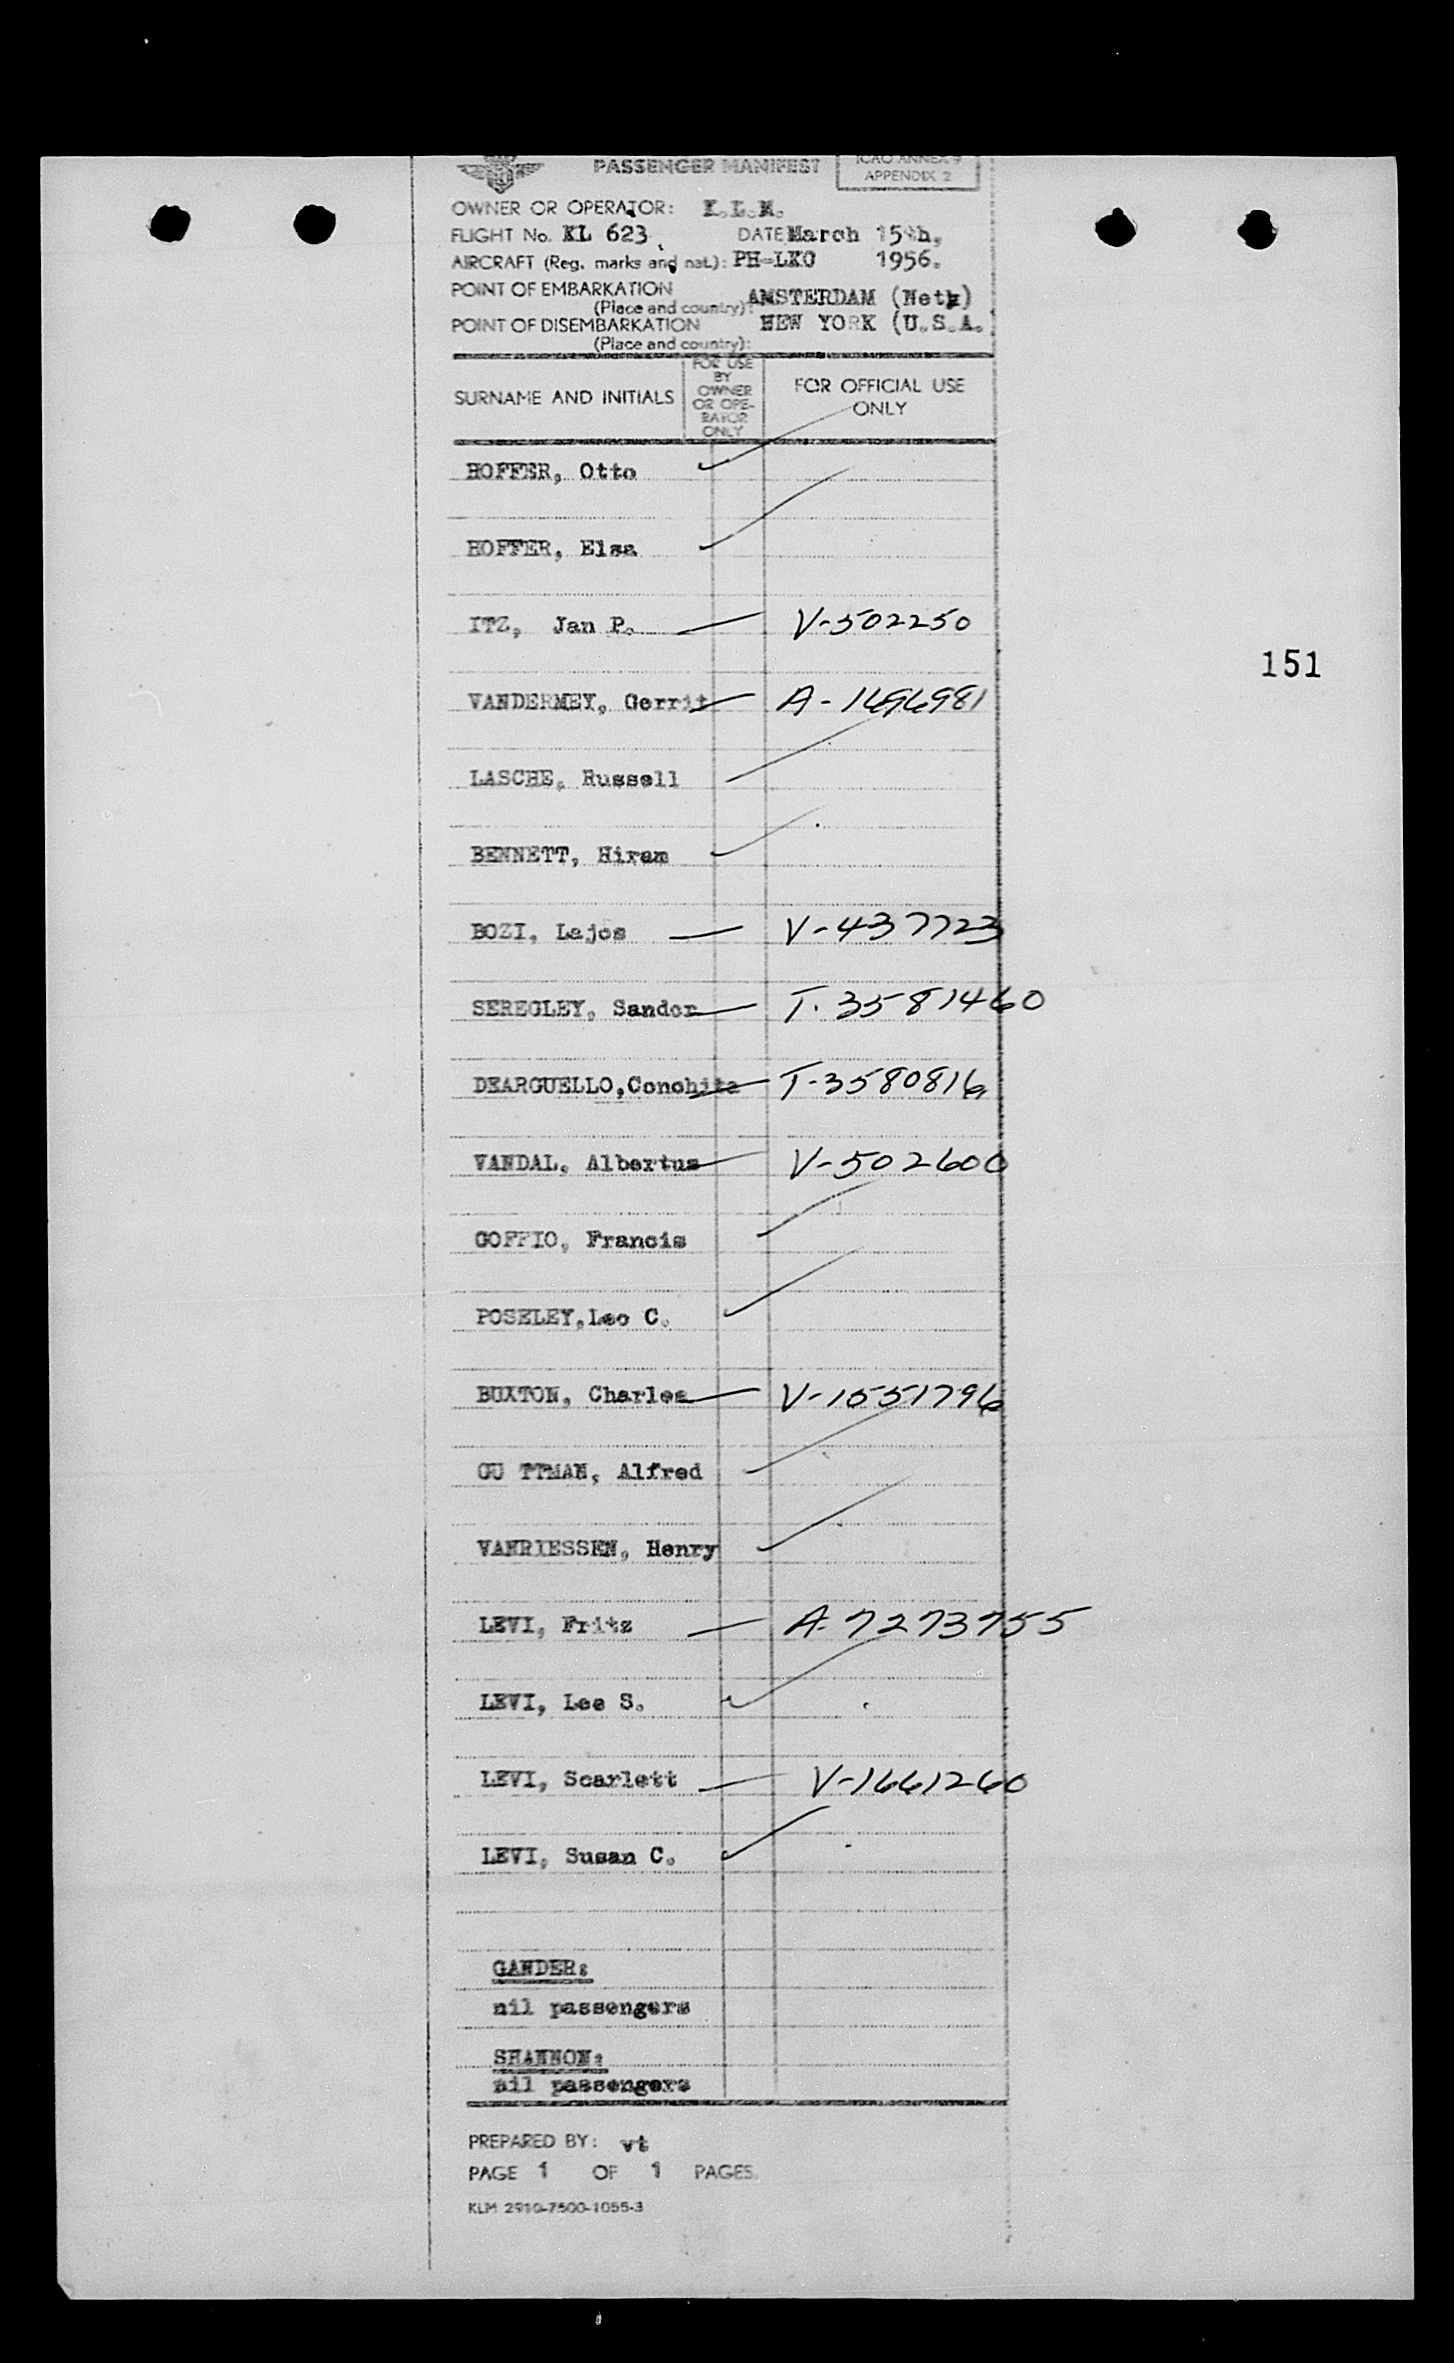 PASSENGER MANIFEST
ICAO ANNEX 9
APPENDIX 2
OWNER OR OPERATOR: K.L.M.
FLIGHT No. KL 623 DATE March 15th,
AIRCRAFT (Reg. marks and nat.): PH-LKO 1956.
POINT OF EMBARKATION
(Place and country): AMSTERDAM (Neth)
POINT OF DISEMBARKATION NEW YORK (U.S.A.
(Place and country):
SURNAME AND INITIALS
FOR USE
BY
OWNER
OR OPE-
RATOR
ONLY
FOR OFFICIAL USE
ONLY
HOFFER, Otto
HOFFER, Elsa
ITZ, Jan P. V-502250
151
VANDERMEY, Gerrit A-1696981
LASCHE, Russell
BENNETT, Hiram
BOZI, Lajos V-437723
SEREGLEY, Sandor T. 3581460
DEARGUELLO,Conchita T-3580816
VANDAL, Albertus V-502600
GOFFIO, Francis
POSELEY,Leo C.
BUXTON, Charles V-1551796
GU TTMAN, Alfred
VANRIESSEN, Henry
LEVI, Fritz A-7273755
LEVI, Lee S.
LEVI, Scarlett V-1661260
LEVI, Susan C.
GANDER:
nil passengers
SHANNON:
nil passengers
PREPARED BY: vt
PAGE 1 OF 1 PAGES.
KLM 2910-7500-1055-3